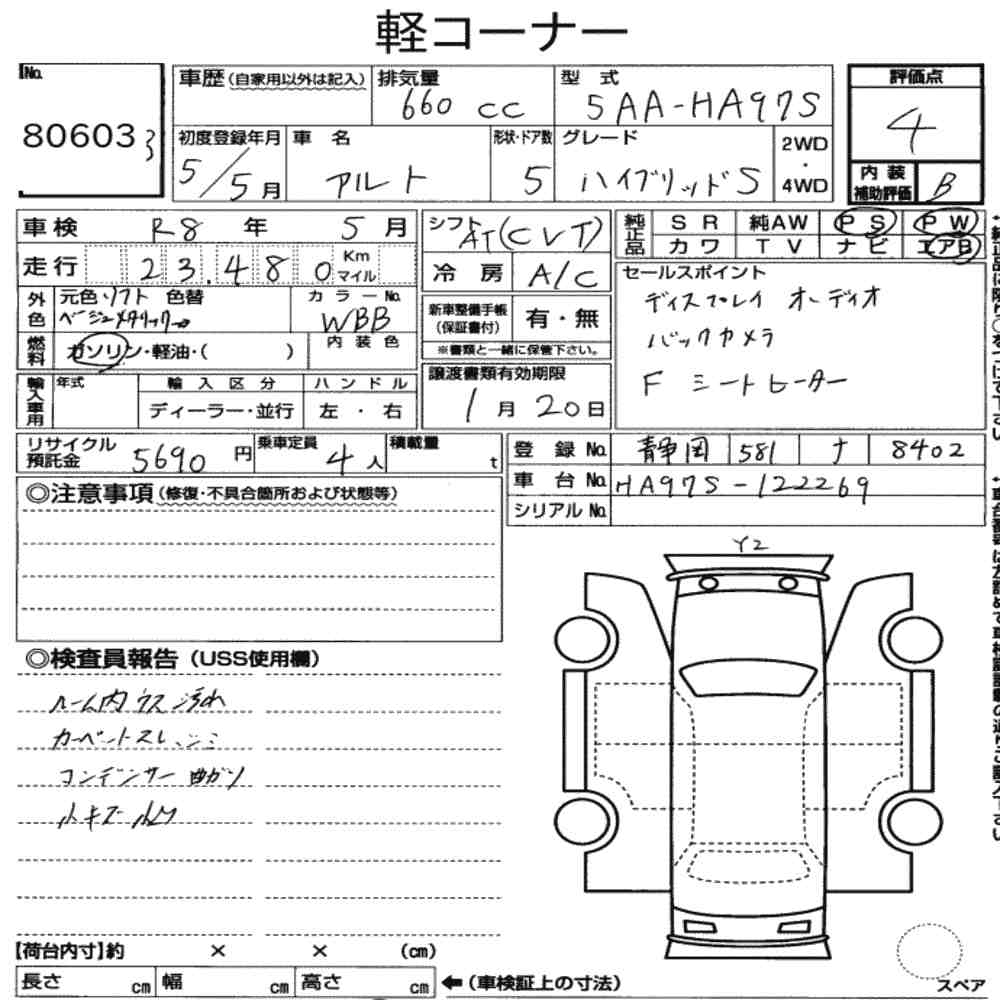 軽コーナー
No. 80603 3
車歴(自家用以外は記入) 排気量 660 cc 型式 5AA-HA97S 評価点 4
初度登録年月 5/5月 車名 アルト 形状・ドア数 5 グレード ハイブリッドS 2WD・4WD 内装補助評価 B
車検 R8 年 5 月 シフト AT(CVT) 純正品 SR 純AW PS PW
カワ TV ナビ エアB
走行 23.480 Km マイル 冷房 A/C
セールスポイント
ディスプレイ オーディオ
バックカメラ
F シートヒーター
外色 元色・ソフト 色替 ベージュメタリック カラーNo. WBB
新車整備手帳(保証書付) 有・無
※書類と一緒に保管下さい。
燃料 ガソリン・軽油・( ) 内装色
輸入車用 年式 輸入区分 ディーラー・並行 ハンドル 左・右
譲渡書類有効期限 1月20日
リサイクル預託金 5690円 乗車定員 4人 積載量 t
登録No. 静岡 581 ナ 8402
車台No. HA97S-122269
シリアルNo.
◎注意事項(修復・不具合箇所および状態等)
Y2
◎検査員報告(USS使用欄)
ルーム内ウス汚れ
カーペットスレ、シミ
コンデンサー曲がり
小キズ小凹
【荷台内寸】約 × × (cm)
長さ cm 幅 cm 高さ cm ←(車検証上の寸法)
スペア